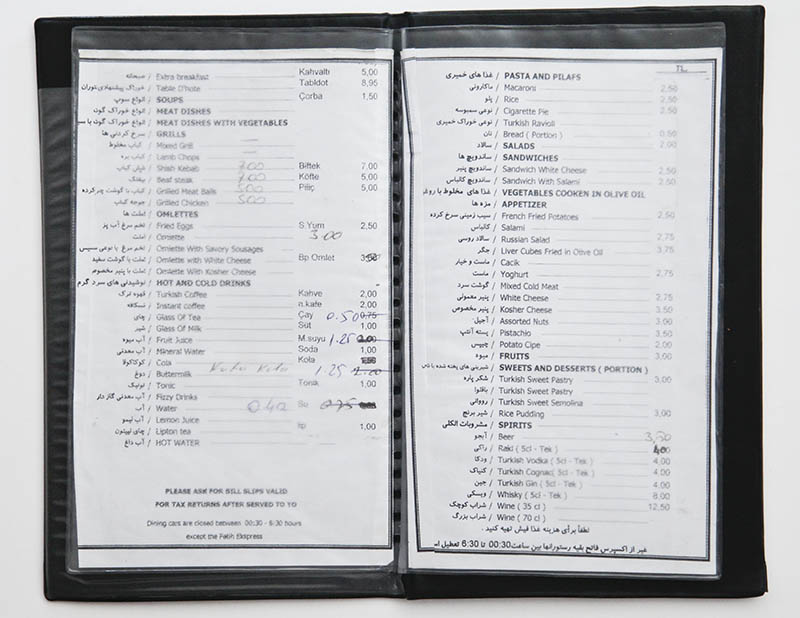 صبحانه / Extra breakfast Kahvaltı 5,00
Table D'hote Tabldot 8,95
انواع سوپ / SOUPS Çorba 1,50
انواع خوراک گوت / MEAT DISHES
MEAT DISHES WITH VEGETABLES
سرخ کردنی ها / GRILLS
کباب مخلوط / Mixed Grill
کباب بره / Lamb Chops
شیش کباب / Shish Kebab 7.00 Biftek 7,00
بیفتک / Beaf steak 7.00 Köfte 5,00
کباب با گوشت چرخ کرده / Grilled Meat Balls 5.00 Piliç 5,00
جوجه کباب / Grilled Chicken 5.00
املت ها / OMLETTES
تخم مرغ آب پز / Fried Eggs S Yum 2,50
املت / Omlette 3.00
Omlette With Savory Sousages
املت با گوشت سفید / Omlette with White Cheese Bp Omlet
املت با پنیر مخصوص / Omlette With Kosher Cheese
نوشیدنی های سرد گرم / HOT AND COLD DRINKS
قهوه ترک / Turkish Coffee Kahve 2,00
نسکافه / Instant coffee n.kafe 2,00
چای / Glass Of Tea Çay 0.50 0,75
شیر / Glass Of Milk Süt 1,00
آب میوه / Fruit Juice M.suyu 1.25
آب معدنی / Mineral Water Soda 1,00
کوکاکولا / Cola Kola
دوغ / Buttermilk 1.25
تونیک / Tonic Tonik 1,00
آب معدنی گاز دار / Fizzy Drinks
آب / Water 0.40 Su
آب لیمو / Lemon Juice
چای لیپتون / Lipton tea 1,00
آب داغ / HOT WATER
PLEASE ASK FOR BILL SLIPS VALID
FOR TAX RETURNS AFTER SERVED TO YO
Dining cars are closed between 00:30 - 6:30 hours
except the Fatih Ekspress
TL
غذا های خمیری / PASTA AND PILAFS
ماکارونی / Macaroni 2,50
پلو / Rice 2,50
نوعی سمبوسه / Cigarette Pie 2,50
نوعی خوراک خمیری / Turkish Ravioli
نان / Bread ( Portion ) 0,50
سالاد / SALADS 2,00
ساندویچ ها / SANDWICHES
ساندویچ پنیر / Sandwich White Cheese 2,50
ساندویچ کالباس / Sandwich With Salami 2,50
غذا های مخلوط با روغ / VEGETABLES COOKEN IN OLIVE OIL
مزه ها / APPETIZER
سیب زمینی سرخ کرده / French Fried Potatoes 2,50
کالباس / Salami
سالاد روسی / Russian Salad 2,75
جگر / Liver Cubes Fried in Olive Oil 3,75
ماست و خیار / Cacik
ماست / Yoghurt 2,75
گوشت سرد / Mixed Cold Meat
پنیر معمولی / White Cheese 2,75
پنیر مخصوص / Kosher Cheese 3,50
آجیل / Assorted Nuts 3,00
Pistachio 3,50
چیپس / Potato Cipe 2,00
میوه / FRUITS 3,00
SWEETS AND DESSERTS ( PORTION )
شکر پاره / Turkish Sweet Pastry 3,00
باقلوا / Turkish Sweet Pastry
روواني / Turkish Sweet Semolina
شیر برنج / Rice Pudding 3,00
مشروبات الکلی / SPIRITS
آبجو / Beer
راکی / Raki ( 5cl - Tek )
ودکا / Turkish Vodka ( 5cl - Tek ) 4,00
کنیاک / Turkish Cognac ( 5cl - Tek ) 4,00
جین / Turkish Gin ( 5cl - Tek ) 4,00
ویسکی / Whisky ( 5cl - Tek ) 8,00
شراب کوچک / Wine ( 35 cl ) 12,50
شراب بزرگ / Wine ( 70 cl )
لطفاً برای هزینه غذا فیش تهیه کنید .
غیر از اکسپرس فاتح بقیه رستورانها بین ساعت 00:30 تا 6:30 تعطیل